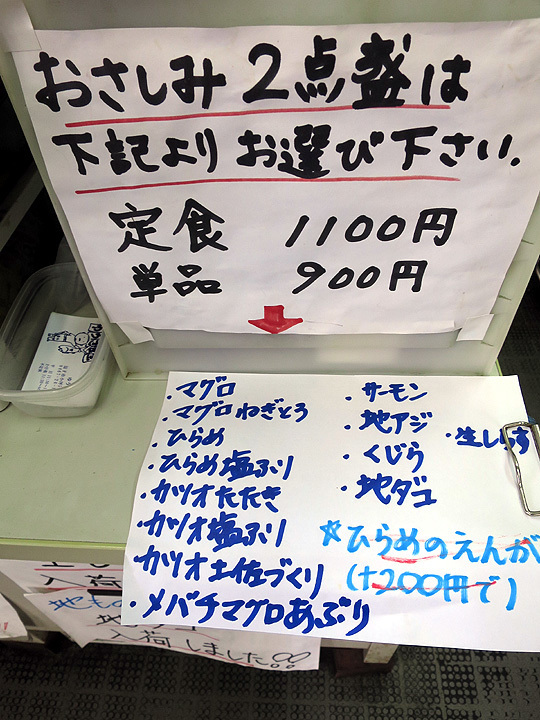 おさしみ2点盛は
下記よりお選び下さい.
定食 1100円
単品 900円
・マグロ
・マグロねぎとろ
・ひらめ
・ひらめ塩ぶり
・カツオたたき
・カツオ塩ぶり
カツオ土佐づくり
・メバチマグロあぶり
・サーモン
・地アジ
・生しらす
・くじら
・地ダコ
☆ひらめのえんが
(+200円で)
入荷
地もの
入荷しました!!